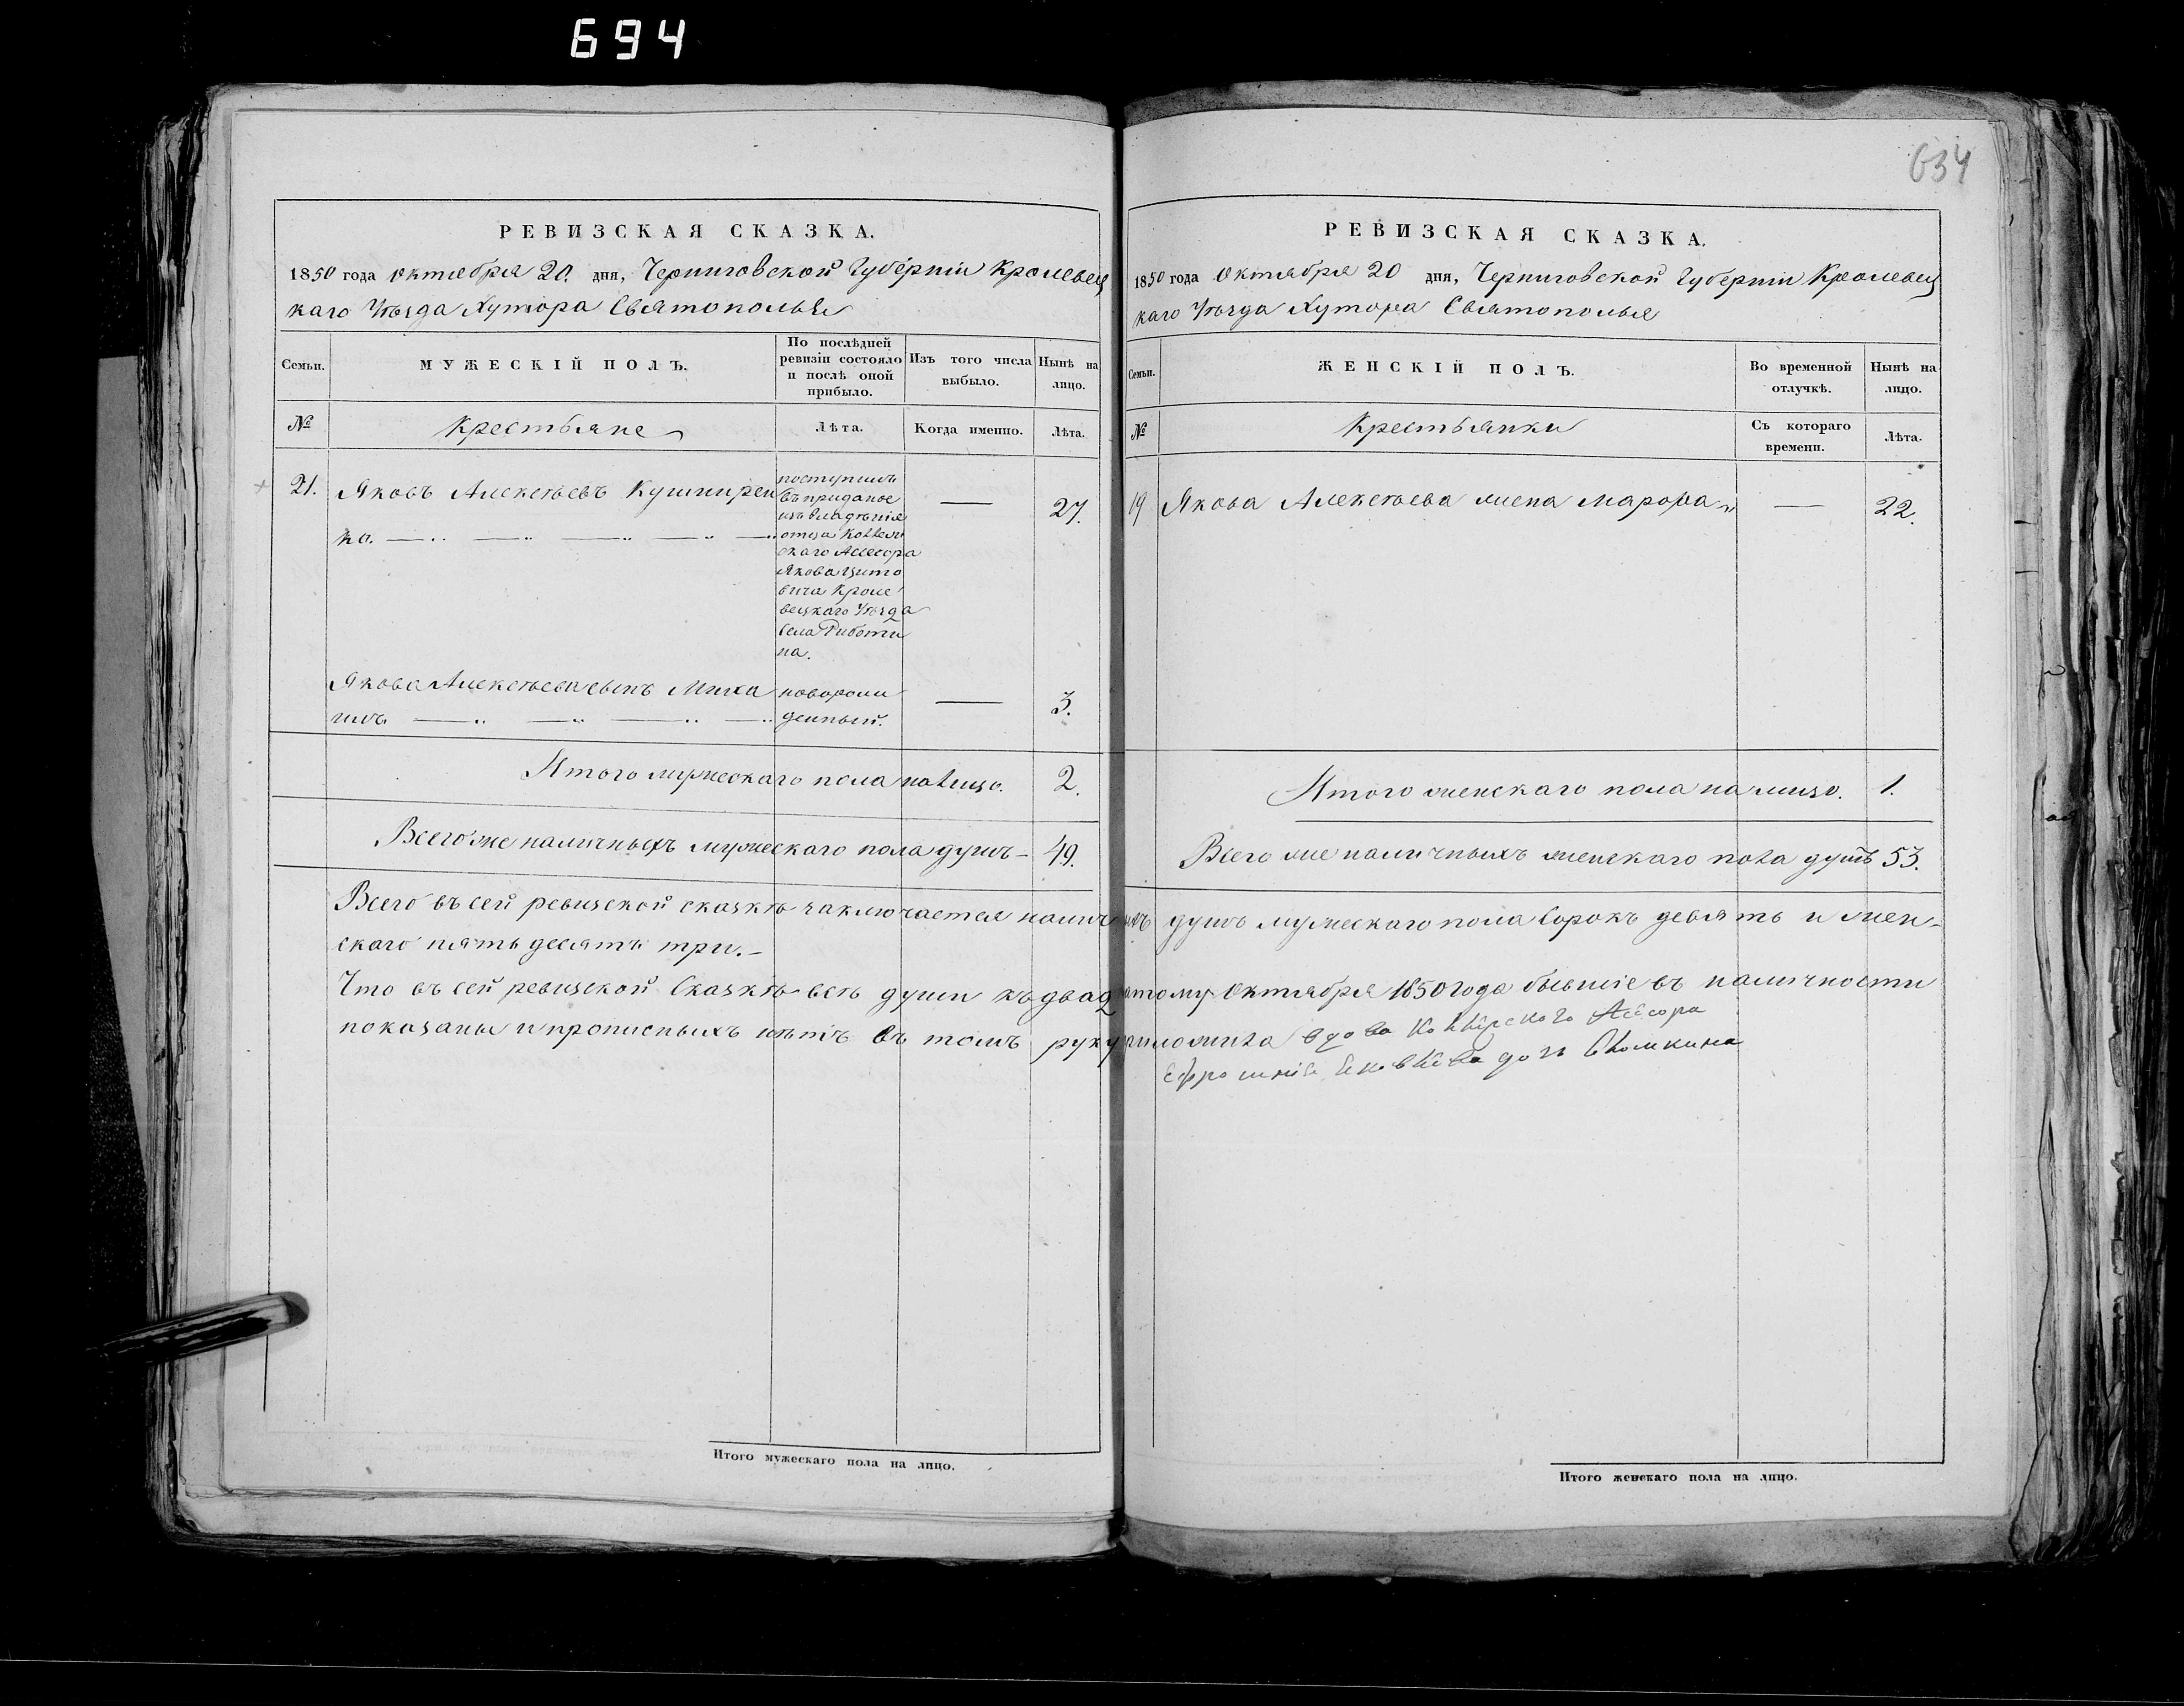 694
634
РЕВИЗСКАЯ СКАЗКА.
1850 года Октября 20. дня, Черниговской Губерніи Кролевец
каго Уѣзда Хутора Святополья
Семьи.
МУЖЕСКІЙ ПОЛЪ.
По послѣдней
ревизіи состояло
и послѣ оной
прибыло.
Изъ того числа
выбыло.
Нынѣ на
лицо.
№
Крестьяне
Лѣта.
Когда именно.
Лѣта.
21.
Яковъ Алексѣевъ Кушнирен
ко.
поступилъ
въ приданое
изъ владѣнія
отца Коллеж
скаго Ассесора
Якова Цито
вича Кроле
вецкаго Уѣзда
села Риботи
на.
27.
Якова Алексѣева сынъ Миха
илъ
новорож
денный.
3.
Итого мужескаго пола налицо. 2.
Всего же наличныхъ мужескаго пола душъ - 49.
РЕВИЗСКАЯ СКАЗКА.
1850 года Октября 20 дня, Черниговской Губерніи Кролевец
каго Уѣзда Хутора Святополья
Семьи.
ЖЕНСКІЙ ПОЛЪ.
Во временной
отлучкѣ.
Нынѣ на
лицо.
№
Крестьянки
Съ котораго
времени.
Лѣта.
19 Якова Алексѣева жена Марфа 22.
Итого женскаго пола на лицо. 1.
Всего же наличныхъ женскаго пола душъ 53.
Всего въ сей ревизской сказкѣ заключается наличныхъ душъ мужескаго пола Сорокъ девять и жен-
скаго пять десятъ три.-
Что въ сей ревизской Сказкѣ всѣ души къ двадцатому Октября 1850 года бывшіе въ наличности
показаны и прописныхъ нѣтъ въ томъ руку приложила вдова
Итого мужескаго пола на лицо.
Итого женскаго пола на лицо.